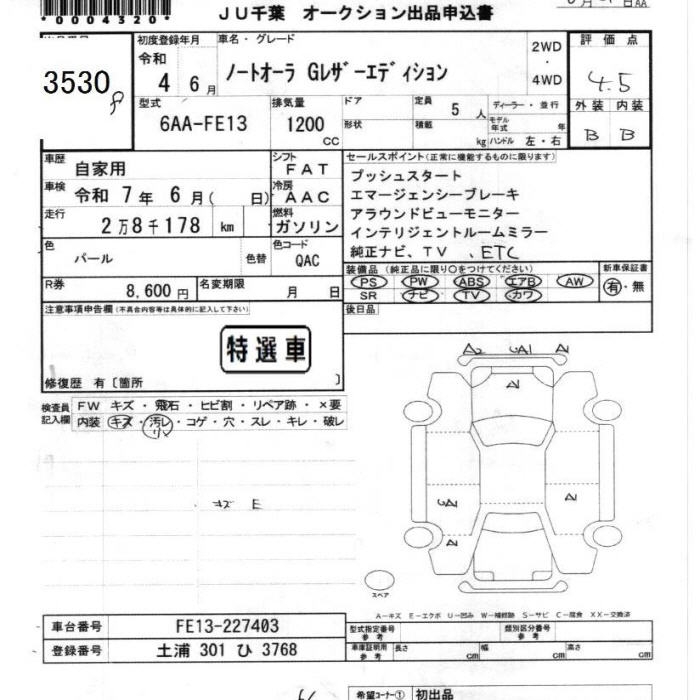 *0004320*
JU千葉 オークション出品申込書
日AA
3530
8
初度登録年月
令和 4 年 6 月
車名・グレード
ノートオーラ Gレザーエディション
2WD
・
4WD
評価点
4.5
外装 内装
B B
型式
6AA-FE13
排気量
1200 CC
ドア
形状
定員 5 人
積載 kg
ディーラー・並行
モデル年式 年
ハンドル 左・右
車歴 自家用
シフト FAT
車検 令和 7 年 6 月( 日)
冷房 AAC
走行 2万8千178 km
燃料 ガソリン
色 パール 色替
色コード QAC
R券 8,600 円
名変期限 月 日
セールスポイント(正常に機能するものに限ります)
プッシュスタート
エマージェンシーブレーキ
アラウンドビューモニター
インテリジェントルームミラー
純正ナビ、TV 、ETC
装備品 (純正品に限り○をつけてください)
PS PW ABS エアB AW
SR ナビ TV カワ
新車保証書
有・無
後日品
注意事項申告欄(不具合内容等は具体的に記入して下さい)
特選車
修復歴 有〔箇所 〕
検査員記入欄
FW キズ・飛石・ヒビ割・リペア跡・×要
内装 キズ・汚レ・コゲ・穴・スレ・キレ・破レ
キズ E
A2 GA1 A1
A1
GA1
A1
A1
スペア
A-キズ E-エクボ U-凹み W-補修跡 S-サビ C-腐食 XX-交換済
車台番号 FE13-227403
登録番号 土浦 301 ひ 3768
型式指定番号 参考
類別区分番号 参考
車庫証明用 参考 長さ cm 幅 cm 高さ cm
希望コーナー① 初出品